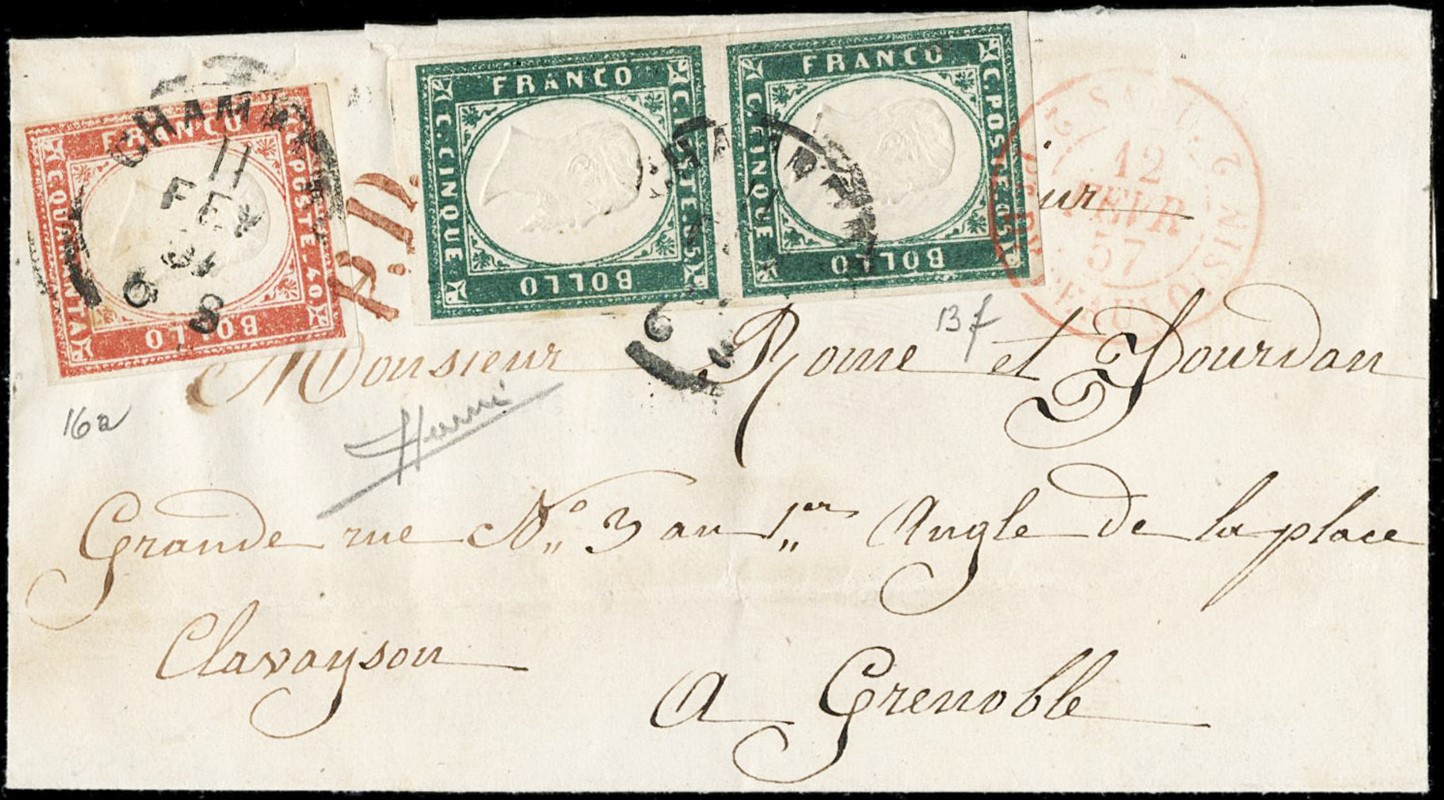 FRANCO
C. POSTE. 40
BOLLO
C. QUARANTA
CHAMBERY
11
FEV
57
6 S
P.D.
FRANCO
C. POSTE. 05
BOLLO
C. CINQUE
FRANCO
C. POSTE. 05
BOLLO
C. CINQUE
12
FEVR
57
Monsieur Rome et Jourdan
16a
13f
Grande rue No. 3 au 1er Angle de la place
Clavayson
A Grenoble